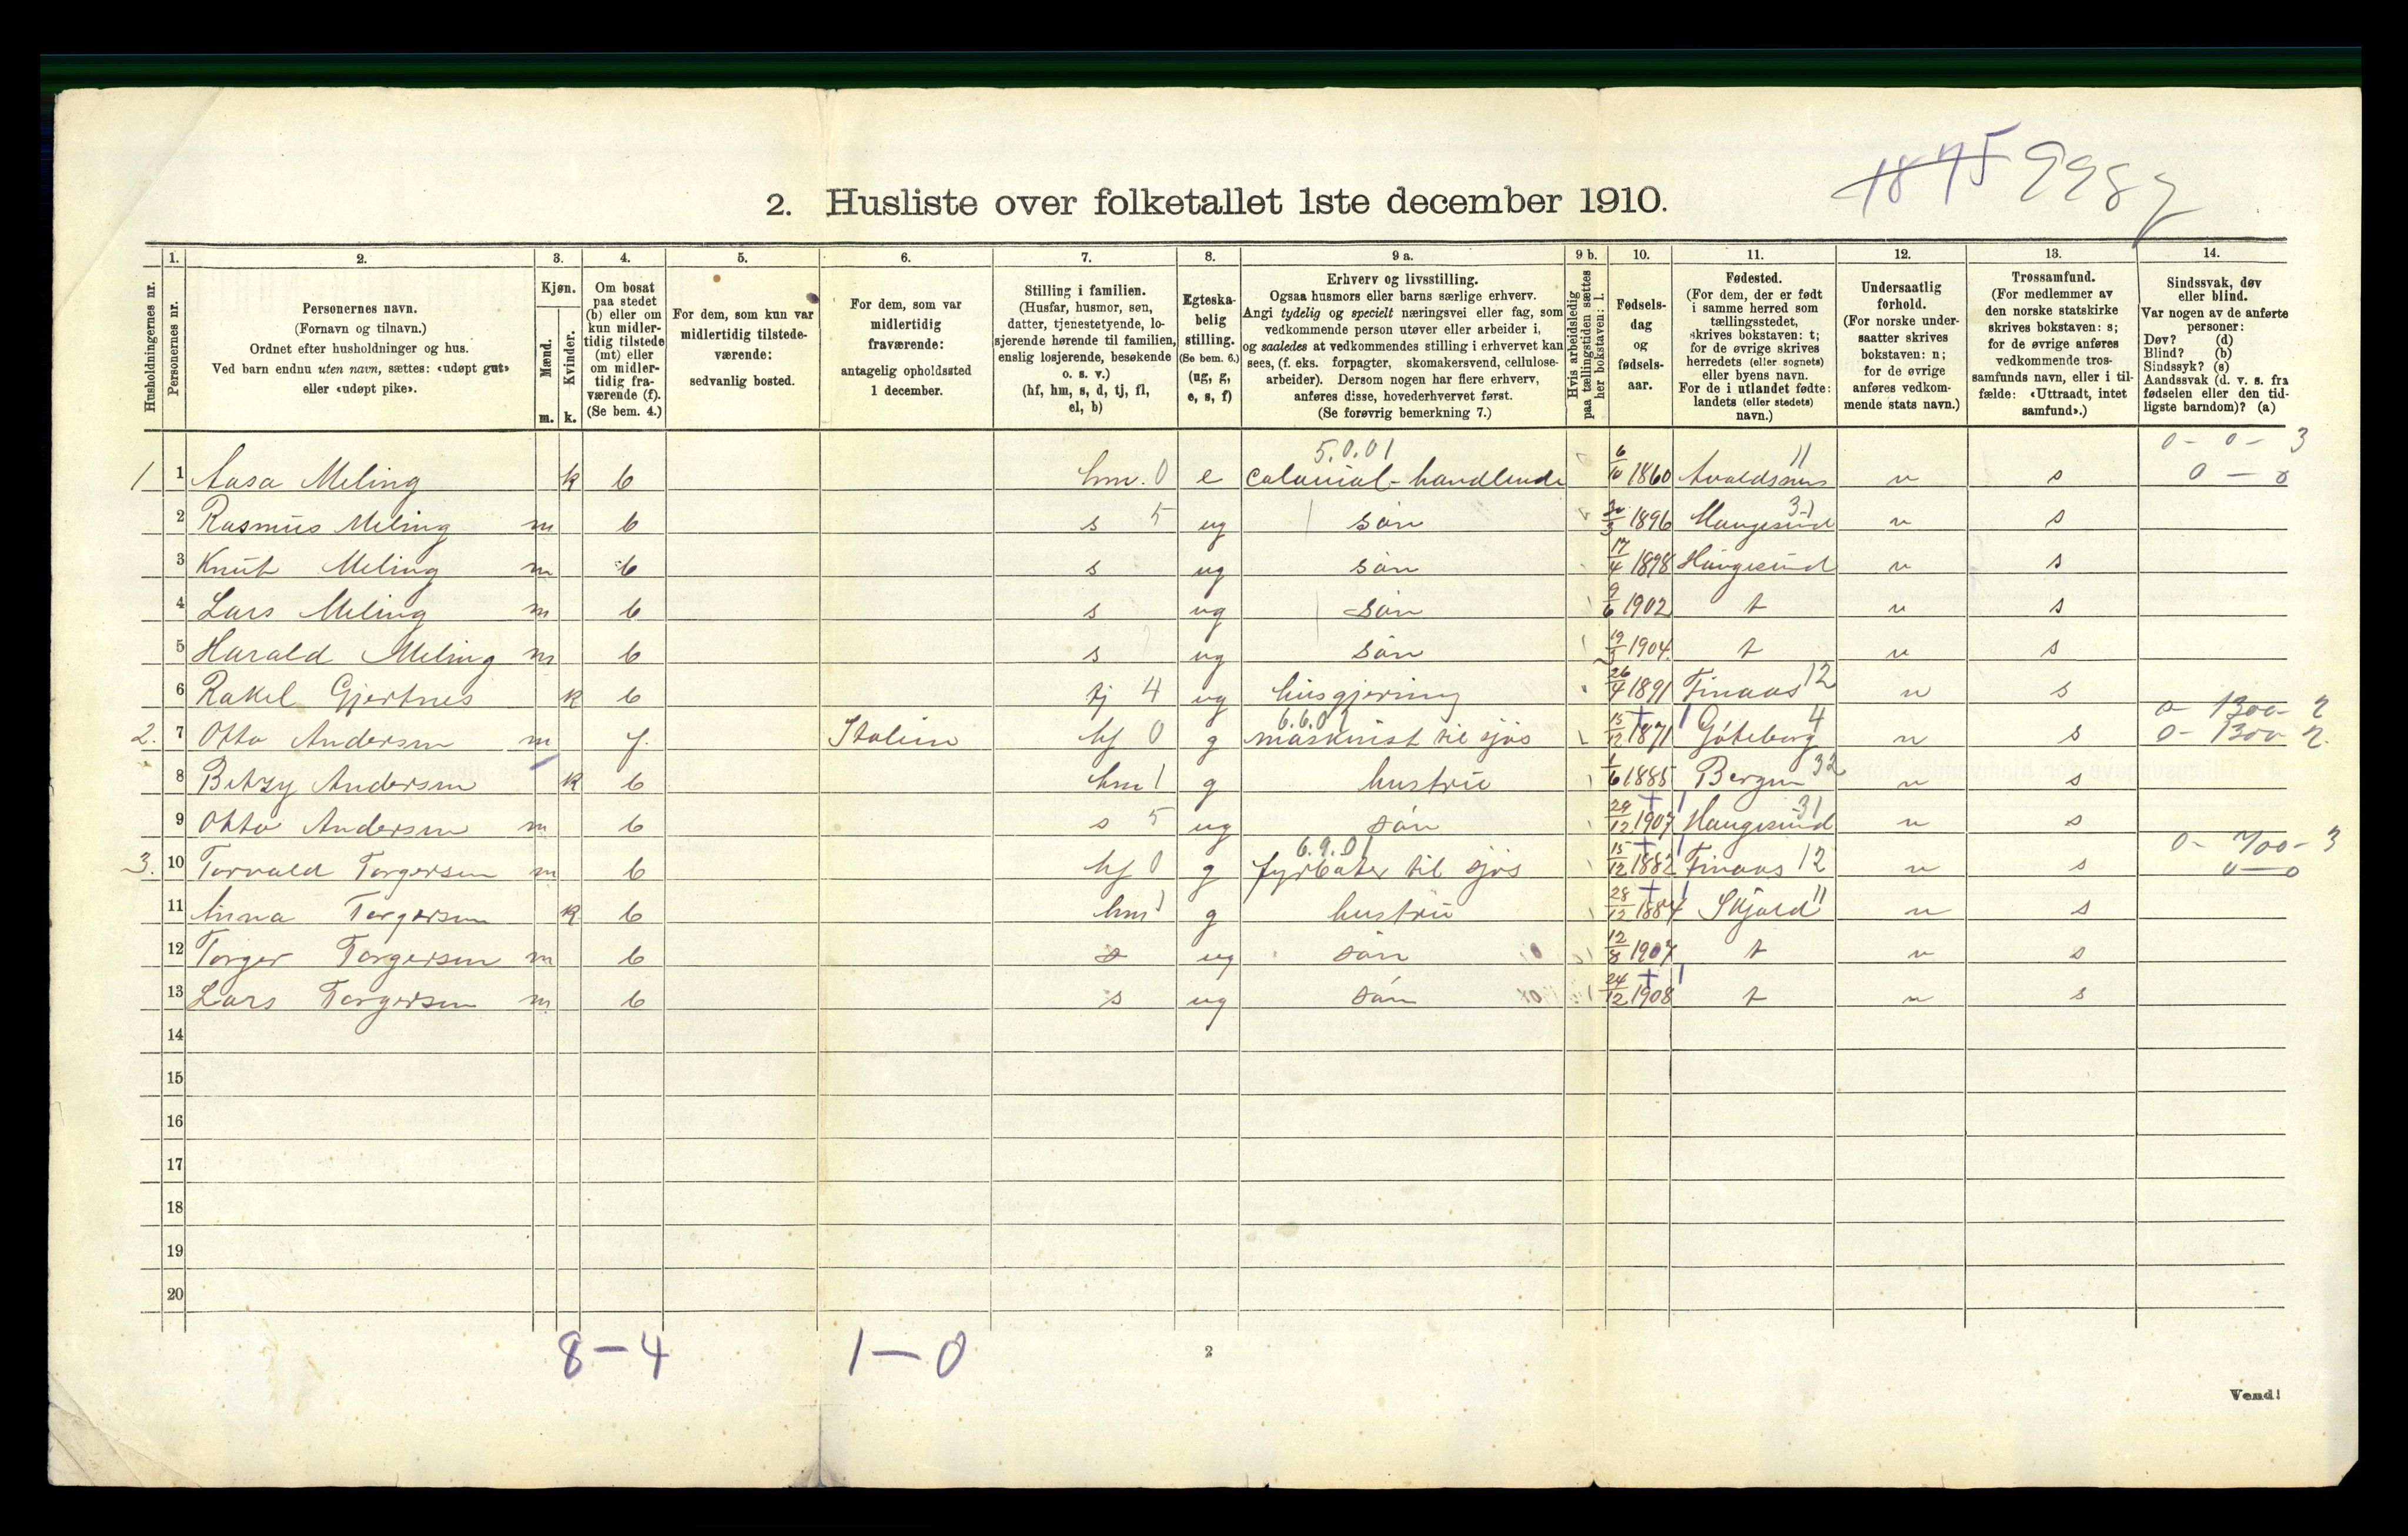 1875 9987
2. Husliste over folketallet 1ste december 1910.
1. 2. 3. 4. 5. 6. 7. 8. 9 a. 9 b. 10. 11. 12. 13. 14.
Husholdningernes nr.
Personernes nr.
Personernes navn.
(Fornavn og tilnavn.)
Ordnet efter husholdninger og hus.
Ved barn endnu uten navn, sættes: «udøpt gut»
eller «udøpt pike».
Kjøn.
Mænd.
Kvinder.
m. k.
Om bosat
paa stedet
(b) eller om
kun midler-
tidig tilstede
(mt) eller
om midler-
tidig fra-
værende (f).
(Se bem. 4.)
For dem, som kun var
midlertidig tilstede-
værende:
sedvanlig bosted.
For dem, som var
midlertidig
fraværende:
antagelig opholdssted
1 december.
Stilling i familien.
(Husfar, husmor, søn,
datter, tjenestetyende, lo-
sjerende hørende til familien,
enslig losjerende, besøkende
o. s. v.)
(hf, hm, s, d, tj, fl,
el, b)
Egteska-
belig
stilling.
(Se bem. 6.)
(ug, g,
e, s, f)
Erhverv og livsstilling.
Ogsaa husmors eller barns særlige erhverv.
Angi tydelig og specielt næringsvei eller fag, som
vedkommende person utøver eller arbeider i,
og saaledes at vedkommendes stilling i erhvervet kan
sees, (f. eks. forpagter, skomakersvend, cellulose-
arbeider). Dersom nogen har flere erhverv,
anføres disse, hovederhvervet først.
(Se forøvrig bemerkning 7.)
Hvis arbeidsledig
paa tællingstiden sættes
her bokstaven: l.
Fødsels-
dag
og
fødsels-
aar.
Fødested.
(For dem, der er født
i samme herred som
tællingsstedet,
skrives bokstaven: t;
for de øvrige skrives
herredets (eller sognets)
eller byens navn.
For de i utlandet fødte:
landets (eller stedets)
navn.)
Undersaatlig
forhold.
(For norske under-
saatter skrives
bokstaven: n;
for de øvrige
anføres vedkom-
mende stats navn.)
Trossamfund.
(For medlemmer av
den norske statskirke
skrives bokstaven: s;
for de øvrige anføres
vedkommende tros-
samfunds navn, eller i til-
fælde: «Uttraadt, intet
samfund».)
Sindssvak, døv
eller blind.
Var nogen av de anførte
personer:
Døv? (d)
Blind? (b)
Sindssyk? (s)
Aandssvak (d. v. s. fra
fødselen eller den tid-
ligste barndom)? (a)
5.0.01 0 - 0 - 3
1 1 Aasa Meling k b hm. 0 e colonial-handlende 6/10 1860 Avaldsnes 11 n s 0 - 0
2 Rasmus Meling m b s 5 ug søn 30/3 1896 Haugesund 31 n s
3 Knut Meling m b s ug søn 17/4 1898 Haugesund n s
4 Lars Meling m b s ug søn 9/6 1902 t n s
5 Harald Meling m b s ug søn 19/3 1904 t n s
6 Rakel Gjertnes k b tj 4 ug husgjerning 26/4 1891 Finaas 12 n s
6.6.01 0 - 1300 - 2
2. 7 Otto Andersen m f. Italien hf 0 g maskinist til sjøs 15/12 1871 Göteborg 4 n s 0 - 1300 2.
8 Betzy Andersen k b hm 1 g hustru 1/6 1885 Bergen 32 n s
9 Otto Andersen m b s 5 ug søn 29/12 1907 Haugesund 31 n s
6.9.01 0 - 700 - 3
3. 10 Torvald Torgersen m b hf 0 g fyrbøter til sjøs 15/12 1882 Finaas 12 n s 0 - 0
11 Anna Torgersen k b hm 1 g hustru 28/12 1884 Skjold 11 n s
12 Torger Torgersen m b s ug søn 12/8 1907 t n s
13 Lars Torgersen m b s ug søn 24/12 1908 t n s
14
15
16
17
18
19
20
8 - 4 1 - 0
2
Vend!